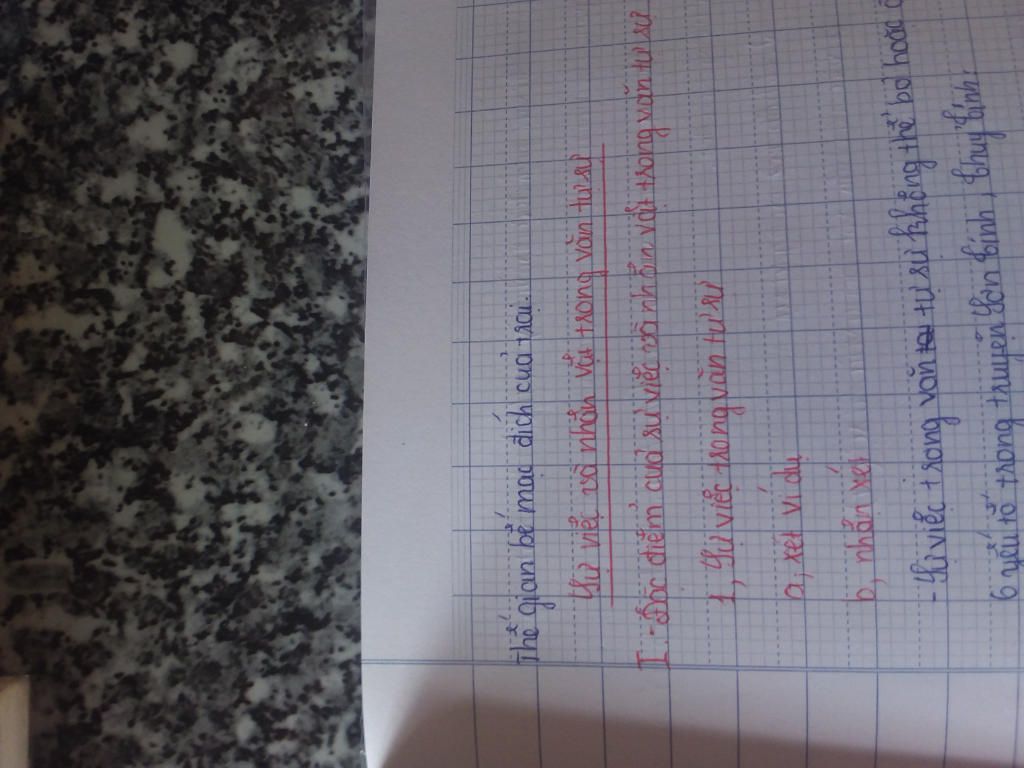 Thế gian bể mạc đích của trại.
Sự việc và nhân vật trong văn tự sự
I - Đặc điểm của sự việc và nhân vật trong văn tự sự
1, Sự việc trong văn tự sự
a, xét ví dụ
b, nhận xét
- Sự việc trong văn tự sự không thể bỏ hoặc
6 yếu tố trong truyện Sơn Tinh, Thuỷ Tinh: